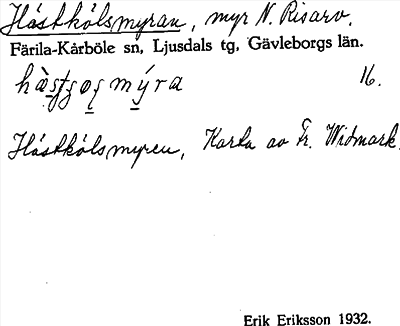 Hástkólsmyran, myr N. Risarv.
Färila-Kårböle sn, Ljusdals tg, Gävleborgs län.
mýra 16.
Hástkólsmyren, Karta av Fr. Widmark.
Erik Eriksson 1932.